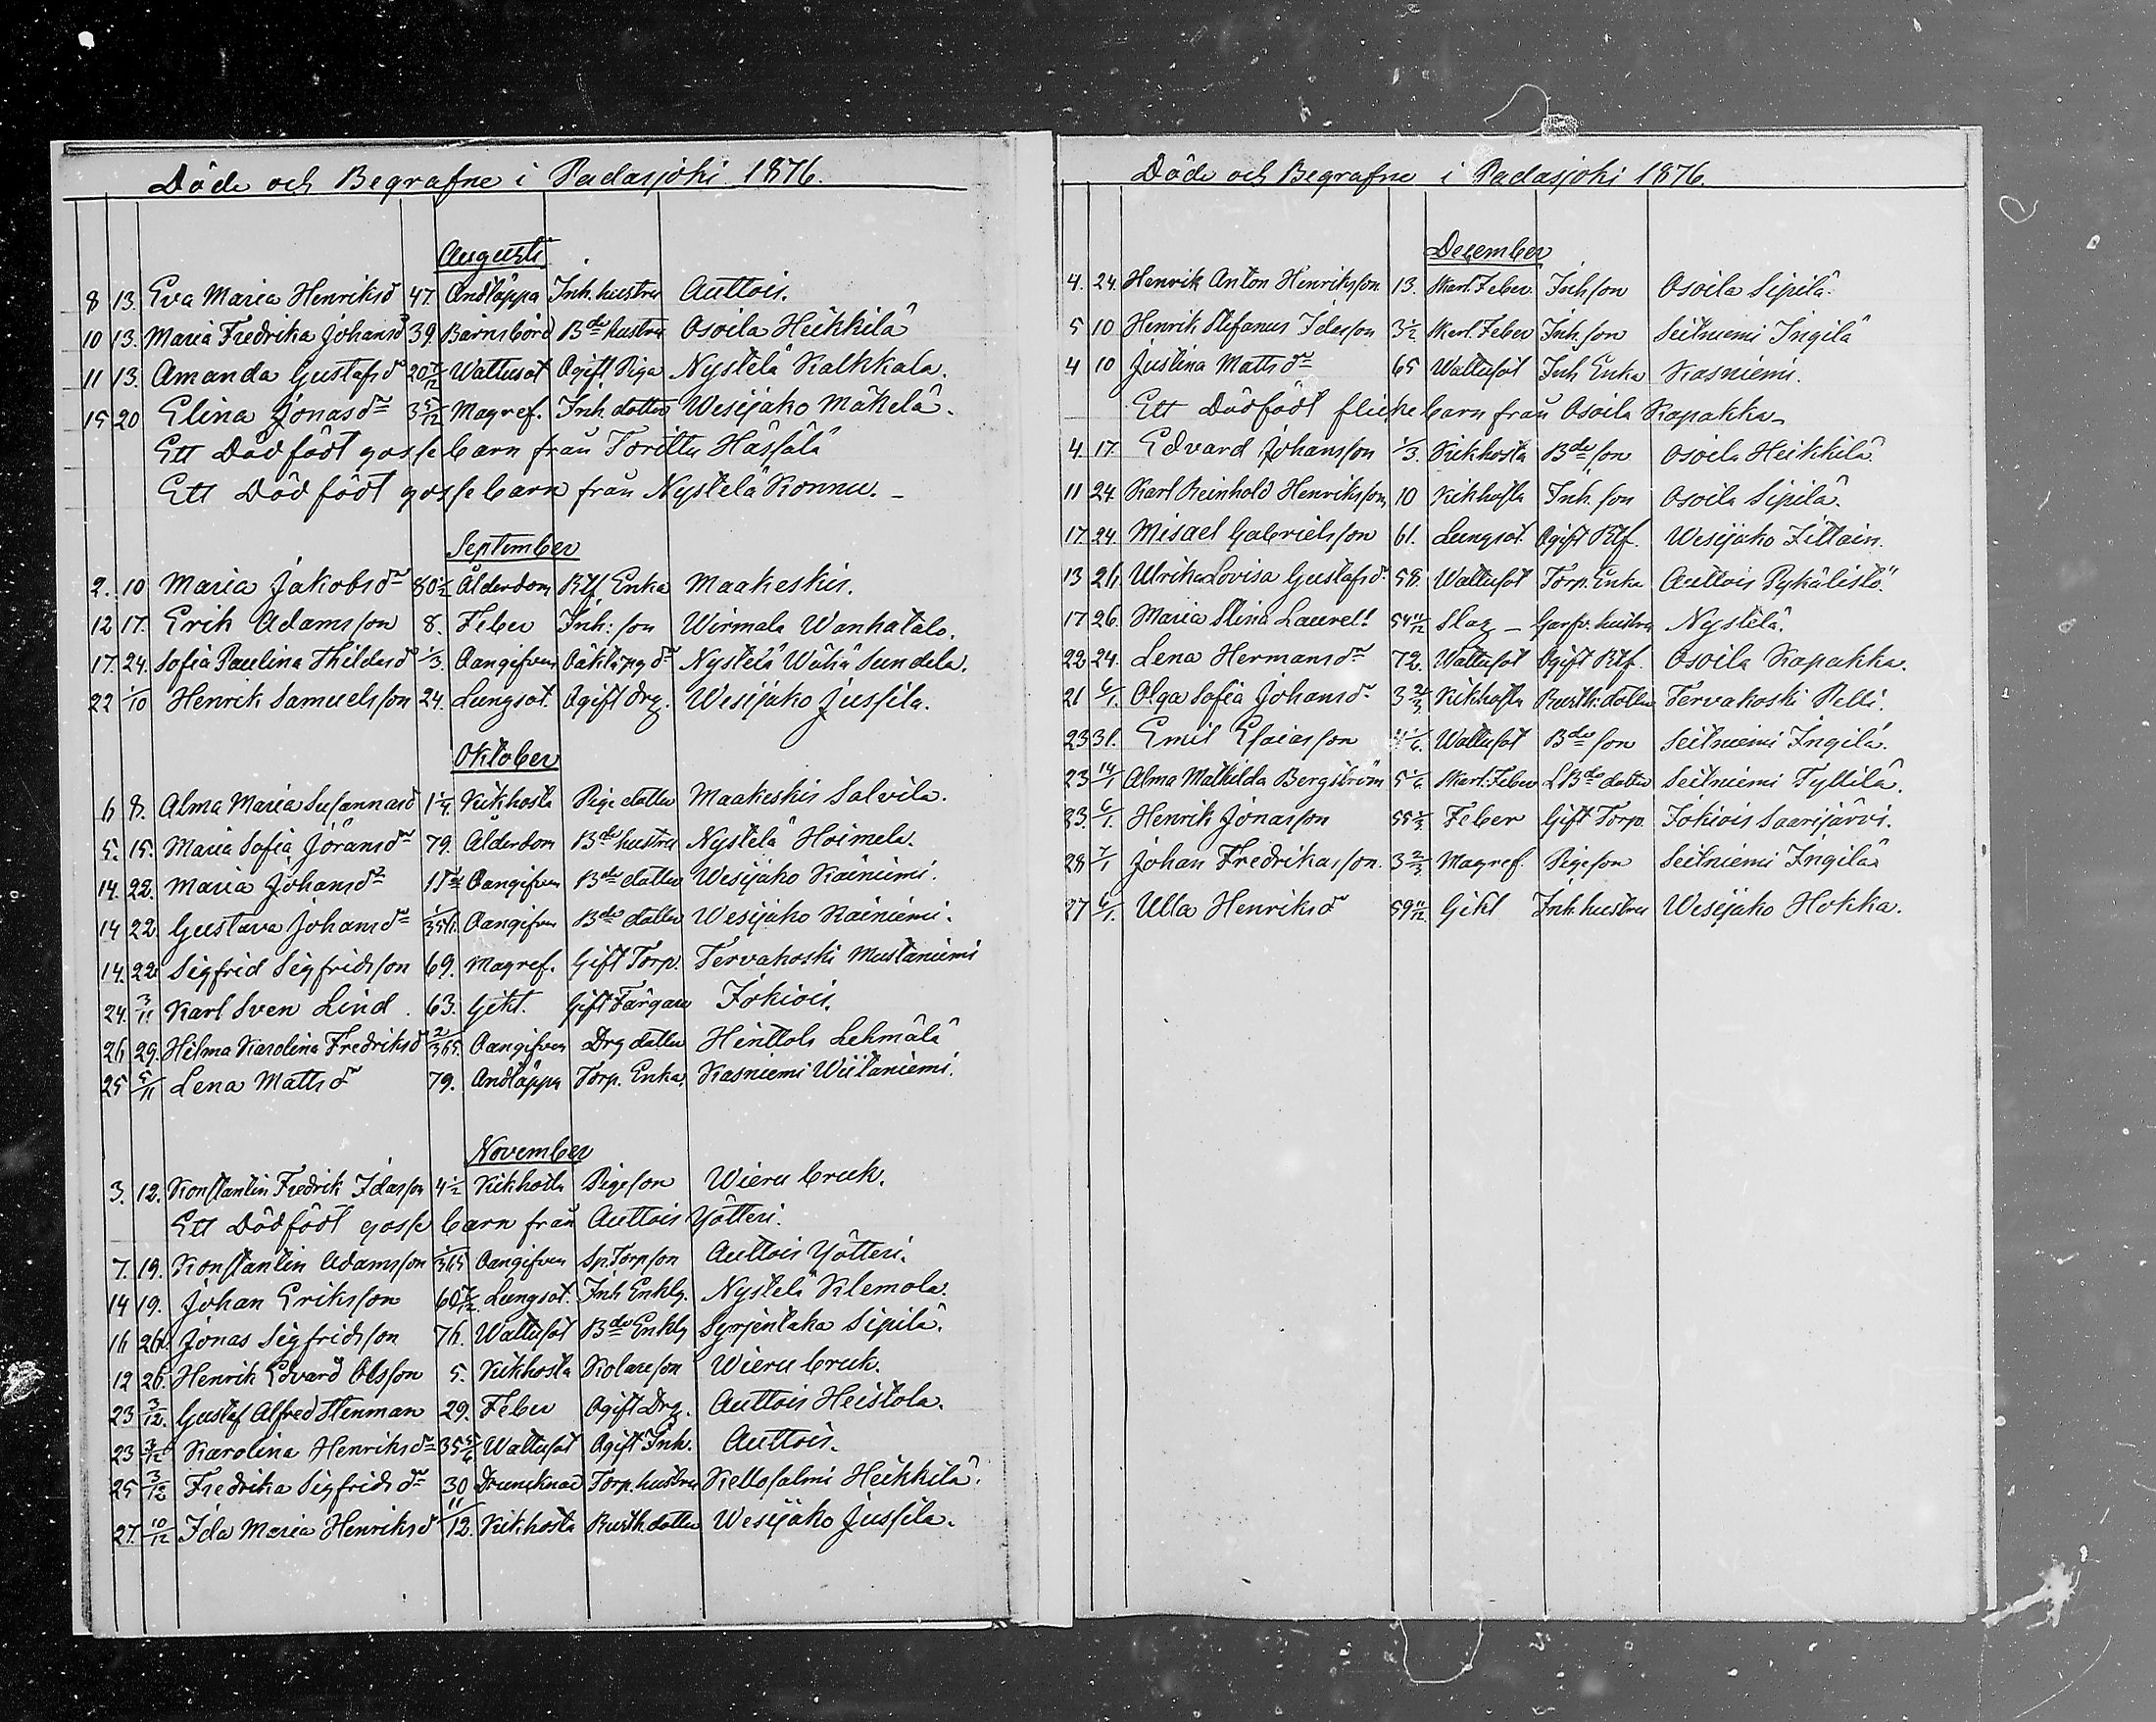 Döde och Begrafne i Padasjoki 1876.
Augusti
8 13. Eva Maria Henriksdr 47. Andtäppa Inh. hustru Auttois.
10 13. Maria Fredrika Johansdr 39. Barnsbörd Bde hustru Osoila Heikkilä
11 13. Amanda Gustafsdr 20 7/12 Wattusot Ogift Piga Nystelä Kalkkala.
15 20 Elina Jonasdr 3 5/12 Magref. Inh. dotter Wesijako Mäkelä.
Ett Dödfödt gossebarn från Toritty Hässälä
Ett Dödfödt gossebarn från Nystelä Konnu.
September
2. 10 Maria Jakobsdr 80 1/2 Ålderdom Rtf. Enka Maakeskis.
12 17. Erik Adamsson 8. Feber Inh: son Wirmala Wanhatalo.
17. 24. Sofia Paulina Thildasdr 1/3. Oangifven Oäkta pg dr Nystelä Wähä Sundila.
22 1/10 Henrik Samuelsson 24. Lungsot. Ogift Drg. Wesijako Jussila.
Oktober
6 8. Alma Maria Susannasdr 1 1/4. Kikhosta Pige dotter Maakeskis Salvila.
5. 15. Maria Sofia Göransdr 79. Ålderdom Bde hustru Nystelä Hoimela.
14. 22. Maria Johansdr Oangifven Bde dotter Wesijako Käiniemi.
14 22. Gustava Johansdr Oangifven Bde dotter Wesijako Käiniemi.
14. 22 Sigfrid Sigfridsson 69. Magref. Gift Torp. Tervakoski Mustaniemi
24. 3/11 Karl Sven Lind. 63. Gikt. Gift Färgare Jokiois.
26 29. Hilma Karolina Fredriksdr 2/365. Oangifven Drg dotter Henttols Lehmälä
25 5/11 Lena Mattsdr 79. Andtäppa Torp. Enka. Kasniemi Wiitaniemi.
November
3. 12. Konstantin Fredrik Idasson 4 1/2 Kikhosta Pigeson Wieru bruk.
Ett Dödfödt gosse barn från Auttois Yötteri.
7. 19. Konstantin Adamsson 1/365 Oangifven Sp. Torpson Auttois Yötteri.
14 19. Johan Eriksson 60 7/12. Lungsot. Inh Enklg. Nystelä Klemola.
16 26. Jonas Sigfridsson 76. Wattusot Bde Enklg Syrjentaka Sipilä.
12 26. Henrik Edvard Olsson 5. Kikhosta Kolareson Wieru bruk.
23 3/12. Gustaf Alfred Stenman 29. Feber Ogift Drg. Auttois Heistola.
23 3/12 Karolina Henriksdr 35 5/6 Wattusot Ogift Inh. Auttois.
25 3/12 Fredrika Sigfridsdr 30 Drunknad Torp. hustru Kellosalmi Heikkilä.
27. 10/12 Ida Maria Henriksdr 11/12. Kikhosta Rusth. dotter Wesijako Jussila.
Döde och Begrafne i Padasjoki 1876.
December
4. 24. Henrik Anton Henriksson 13. Skarl. Feber Inh son Osoila Sipilä.
5 10 Henrik Stefanus Idasson 3 1/2 Skarl. Feber Inh. son Seitniemi Ingilä
4 10 Justina Mattsdr 65 Wattusot Inh Enka Kasniemi.
Ett Dödfödt flickebarn från Osoila Kapakka
4. 17. Edvard Johansson 1/3. Kikhosta Bde son Osoila Heikkilä
11 24. Karl Reinhold Henriksson 10 Kikhosta Inh. son Osoila Sipilä.
17. 24. Misael Gabrielsson 61. Lungsot. Ogift Rtf. Wesijako Tittain.
13 26 Ulrika Lovisa Gustafsdr 58. Wattusot Torp. Enka Auttois Pykälistö.
17 26. Maria Stina Laurell 54 11/12 Slag Garfv. hustru Nystelä.
22 24. Lena Hermansdr 72. Wattusot Ogift Rtf. Osoila Kapakka.
21 6/1. Olga Sofia Johansdr 3 2/3 Kikhosta Rusth: dotter Tervakoski Pelli.
23 31. Emil Esaiasson Wattusot Bde son Seitniemi Ingilä.
23 14/1 Alma Mathilda Bergström 5 1/6 Skarl: Feber LBde dotter Seitniemi Tyllilä.
23. 6/1. Henrik Jonasson 55 2/3. Feber Gift Torp. Jokiois Saarijärvi.
28 7/1 Johan Fredrikasson. 3 2/3 Magref. Pigeson Seitniemi Ingilä
27 6/1. Ulla Henriksdr 59 11/12. Gikt Inh. hustru Wesijako Hokka.